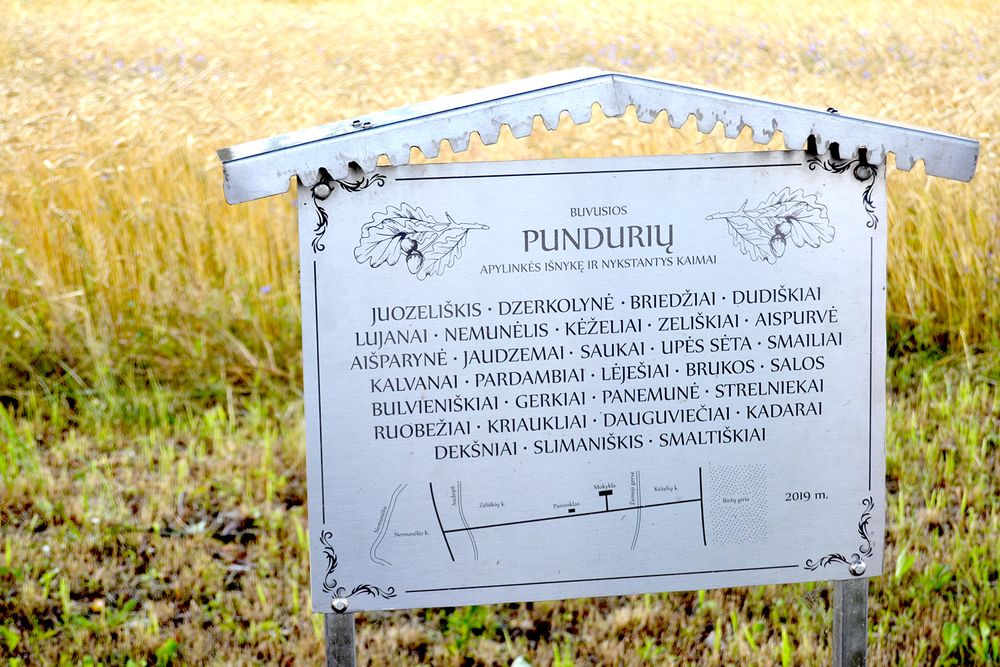 BUVUSIOS
PUNDURIŲ
APYLINKĖS IŠNYKĘ IR NYKSTANTYS KAIMAI
JUOZELIŠKIS · DZERKOLYNĖ · BRIEDŽIAI · DUDIŠKIAI
LUJANAI · NEMUNĖLIS · KĖŽELIAI · ZELIŠKIAI · AISPURVĖ
AIŠPARYNĖ · JAUDZEMAI · SAUKAI · UPĖS SĖTA · SMAILIAI
KALVANAI · PARDAMBIAI · LĖJEŠIAI · BRUKOS · SALOS
BULVIENIŠKIAI · GERKIAI · PANEMUNĖ · STRELNIEKAI
RUOBEŽIAI · KRIAUKLIAI · DAUGUVIEČIAI · KADARAI
DEKŠNIAI · SLIMANIŠKIS · SMALTIŠKIAI
Nemunėlis
Nemunėlio k.
Audupė
Zeliškių k.
Paminklas
Mokykla
Žemoji gervė
Kėželių k.
Biržų giria
2019 m.